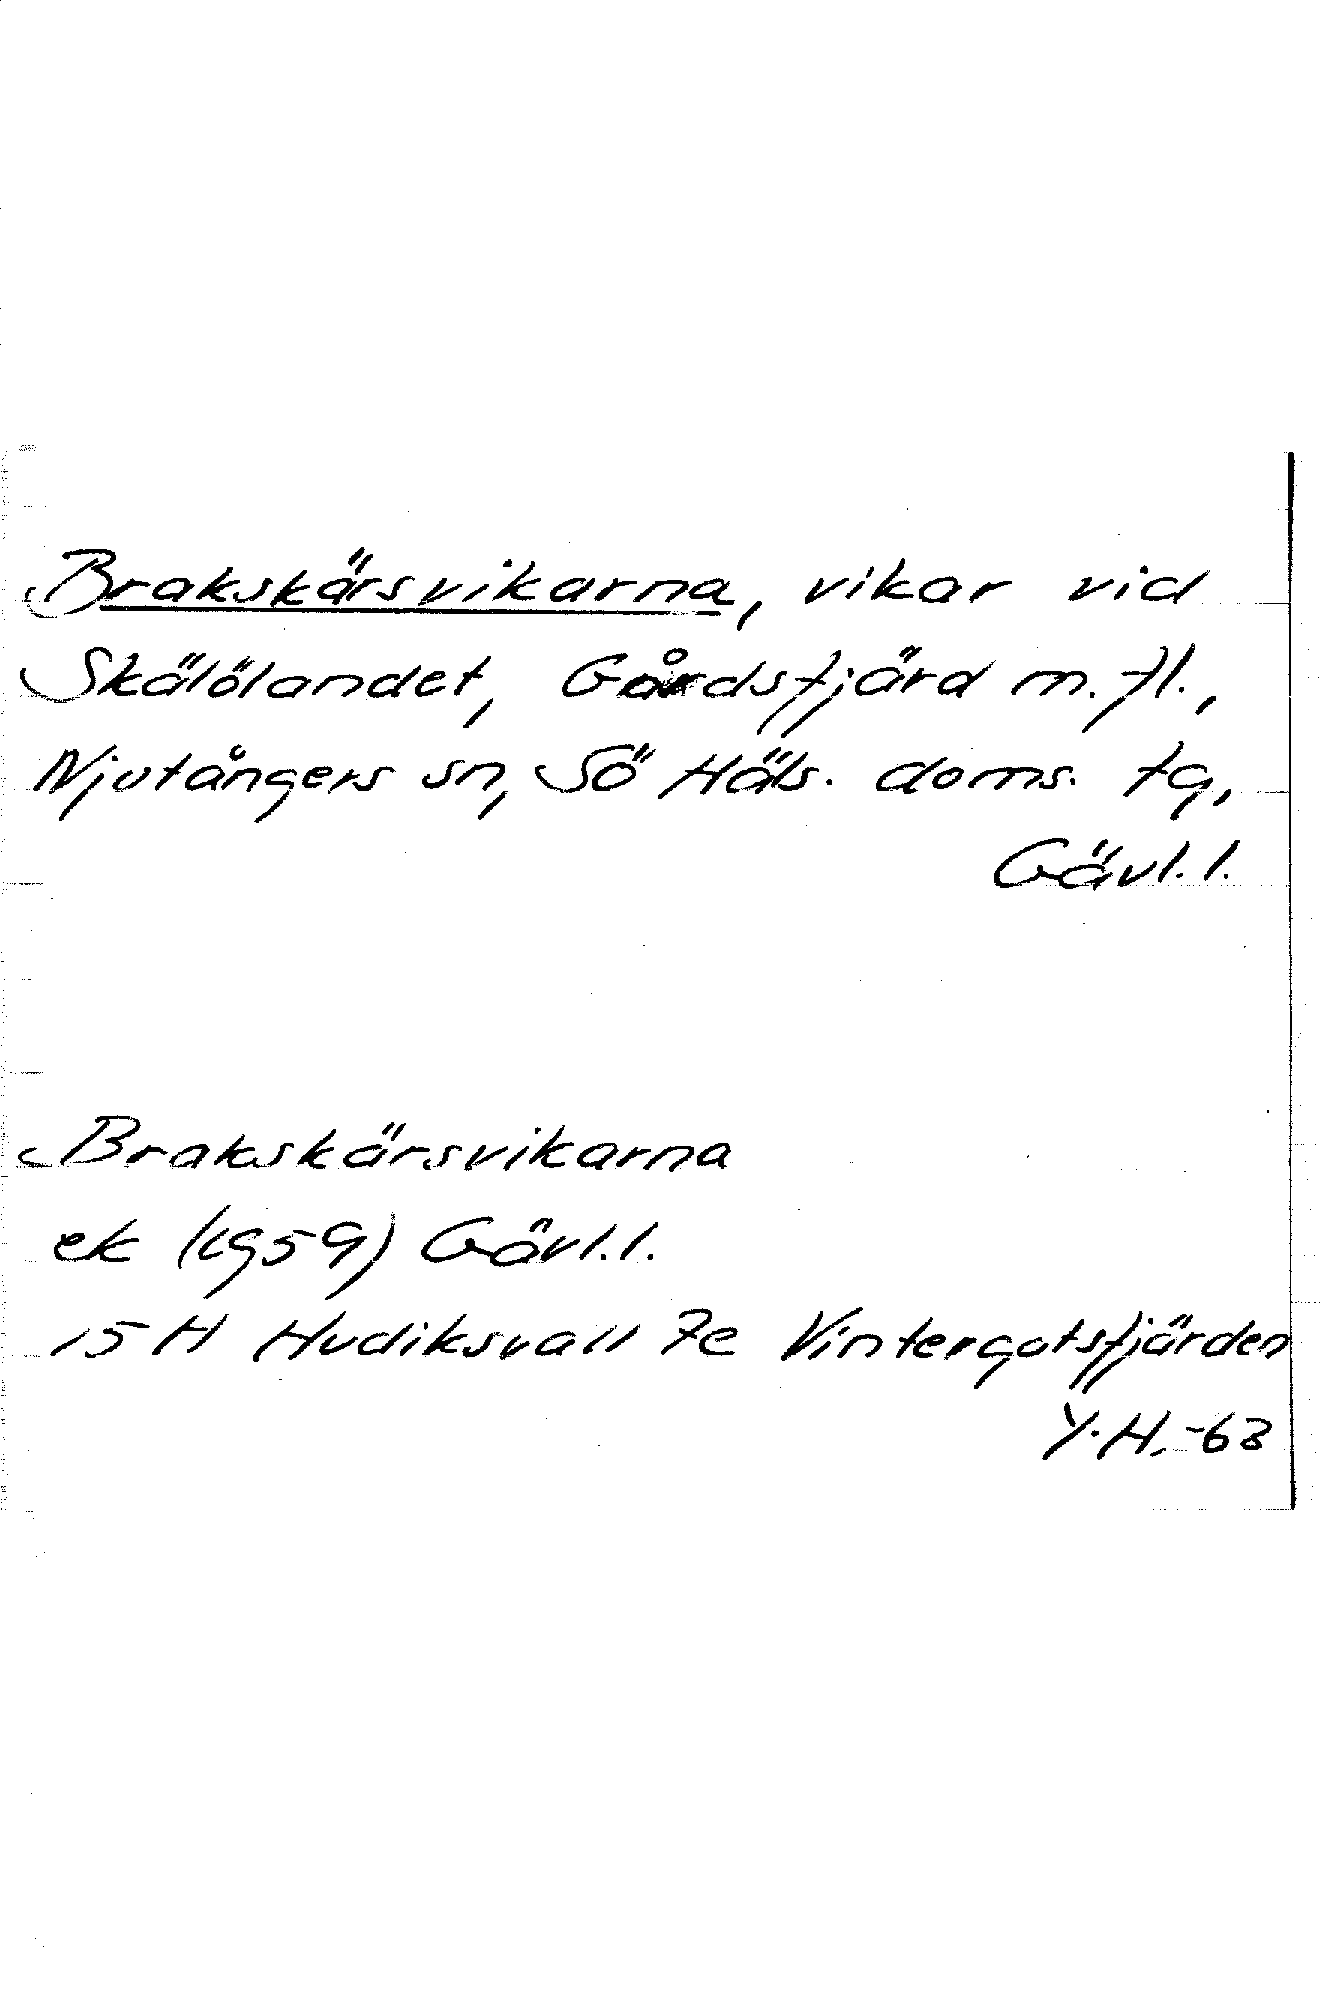 Brakskärsvikarna, vikar vid
Skälölandet, Gårdsfjärd m.fl.,
Njutångers sn, Sö Häls. doms. tg,
Gävl.l.
Brakskärsvikarna
ek (1959) Gävl.l.
15 H Hudiksvall 7e Vintergatsfjärden
Y.H.-63